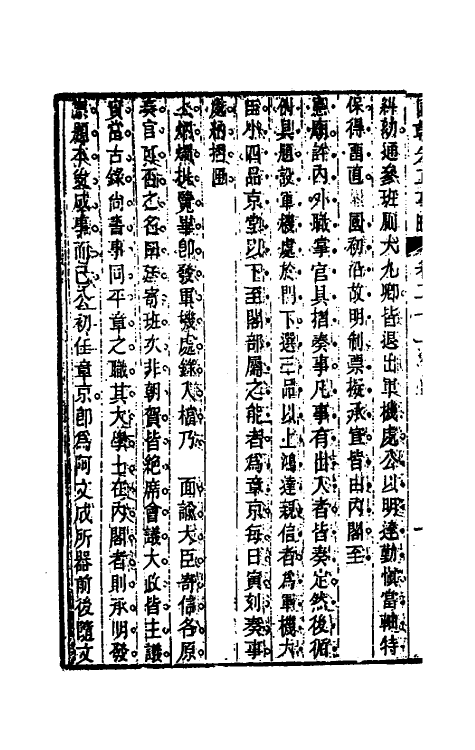 糾劾通參班屬大九卿皆退出軍機處公以明達勤慎當軸特
保得畱直 國初沿故明制票擬承宣皆由內閣至
憲廟許內外職掌官具摺奏事凡事有出入者皆奏定然後循
例具題設軍機處於門下選三品以上鴻達親信者爲軍機大
臣小四品京堂以下至閣部屬之能者爲章京每日寅刻奏事
處納摺匣
上炳燭披覽畢即發軍機處錄入檔乃 面諭大臣寄信各原
奏官可否之名曰廷寄班次非朝賀皆絕席會議大政皆主議
實當古錄尚書事同平章之職其大學士在內閣者則承明發
票題本發咸事而已公初任章京即爲阿文成所器前後隨文